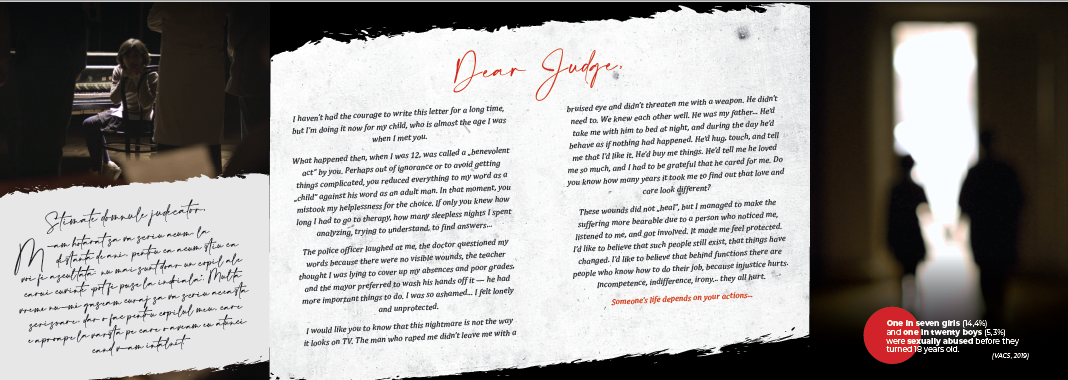 Stimate domnule judecator,
M-am hotarat sa va scriu acum, la
distanta de ani, pentru ca acum stiu ca
voi fi ascultata: nu mai sunt doar un copil ale
carui cuvinte pot fi puse la indoiala. Multa
vreme nu-mi gaseam curaj sa va scriu aceasta
scrisoare, dar o fac pentru copilul meu, care
e aproape la varsta pe care o aveam eu atunci
cand v-am intalnit.
Dear Judge,
I haven't had the courage to write this letter for a long time,
but I'm doing it now for my child, who is almost the age I was
when I met you.
What happened then, when I was 12, was called a „benevolent
act” by you. Perhaps out of ignorance or to avoid getting
things complicated, you reduced everything to my word as a
„child” against his word as an adult man. In that moment, you
mistook my helplessness for the choice. If only you knew how
long I had to go to therapy, how many sleepless nights I spent
analyzing, trying to understand, to find answers...
The police officer laughed at me, the doctor questioned my
words because there were no visible wounds, the teacher
thought I was lying to cover up my absences and poor grades,
and the mayor preferred to wash his hands off it — he had
more important things to do. I was so ashamed... I felt lonely
and unprotected.
I would like you to know that this nightmare is not the way
it looks on TV. The man who raped me didn't leave me with a
bruised eye and didn't threaten me with a weapon. He didn't
need to. We knew each other well. He was my father... He'd
take me with him to bed at night, and during the day he'd
behave as if nothing had happened. He'd hug, touch, and tell
me that I'd like it. He'd buy me things. He'd tell me he loved
me so much, and I had to be grateful that he cared for me. Do
you know how many years it took me to find out that love and
care look different?
These wounds did not „heal”, but I managed to make the
suffering more bearable due to a person who noticed me,
listened to me, and got involved. It made me feel protected.
I'd like to believe that such people still exist, that things have
changed. I'd like to believe that behind functions there are
people who know how to do their job, because injustice hurts.
Incompetence, indifference, irony... they all hurt.
Someone's life depends on your actions...
One in seven girls (14,4%)
and one in twenty boys (5,3%)
were sexually abused before they
turned 18 years old.
(VACS, 2019)